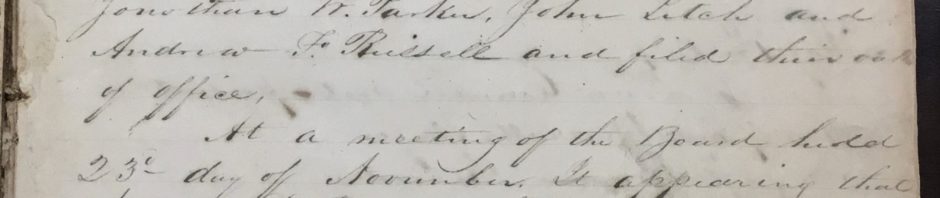 Jonathan W. Parker, John Letch and
Andrew F. Russell and filed their oath
of office,
At a meeting of the Board held
23d day of November. It appearing that